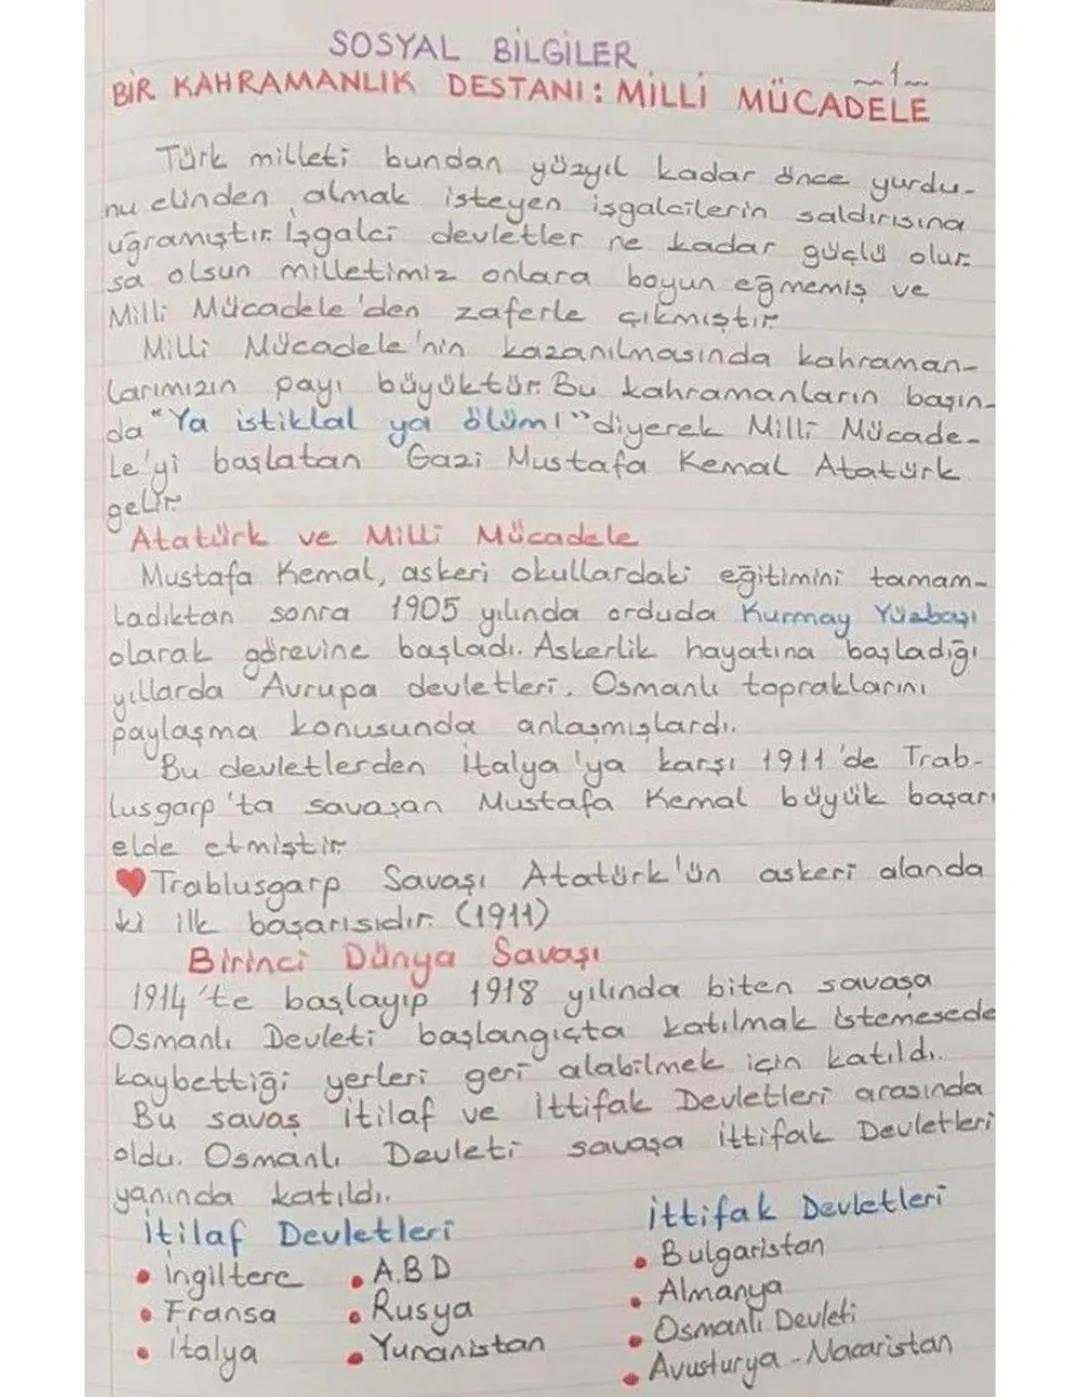 SOSYAL BİLGİLER
1
BİR KAHRAMANLIK DESTANI: MİLLİ MÜCADELE
Türk milleti bundan yüzyıl kadar önce yurdu-
nu elinden almak isteyen işgalcilerin saldırısına
uğramıştır. İşgalci devletler ne kadar güçlü olur-
sa olsun milletimiz onlara boyun eğmemiş ve
Milli Mücadele'den zaferle çıkmıştır.
Milli Mücadele'nin kazanılmasında kahraman-
larımızın payı büyüktür. Bu kahramanların başın-
da "Ya istiklal ya ölüm!" diyerek Milli Mücade-
le'yi başlatan Gazi Mustafa Kemal Atatürk
gelir.
Atatürk ve Milli Mücadele
Mustafa Kemal, askeri okullardaki eğitimini tamam-
ladıktan sonra 1905 yılında orduda Kurmay Yüzbaşı
olarak görevine başladı. Askerlik hayatına başladığı
yıllarda Avrupa devletleri. Osmanlı topraklarını
paylaşma konusunda anlaşmışlardı.
Bu devletlerden İtalya'ya karşı 1911'de Trab-
lusgarp'ta savaşan Mustafa Kemal büyük başarı
elde etmiştir.
Trablusgarp Savaşı Atatürk'ün askeri alanda
ki ilk başarısıdır. (1911)
Birinci Dünya Savaşı
1914'te başlayıp 1918 yılında biten savaşa
Osmanlı Devleti başlangıçta katılmak istemesede
kaybettiği yerleri geri alabilmek için katıldı.
Bu savaş İtilaf ve İttifak Devletleri arasında
oldu. Osmanlı Devleti savaşa İttifak Devletleri
yanında katıldı.
İtilaf Devletleri
• İngiltere
• Fransa
• İtalya
• A.B.D
• Rusya
• Yunanistan
İttifak Devletleri
• Bulgaristan
• Almanya
• Osmanlı Devleti
• Avusturya - Macaristan